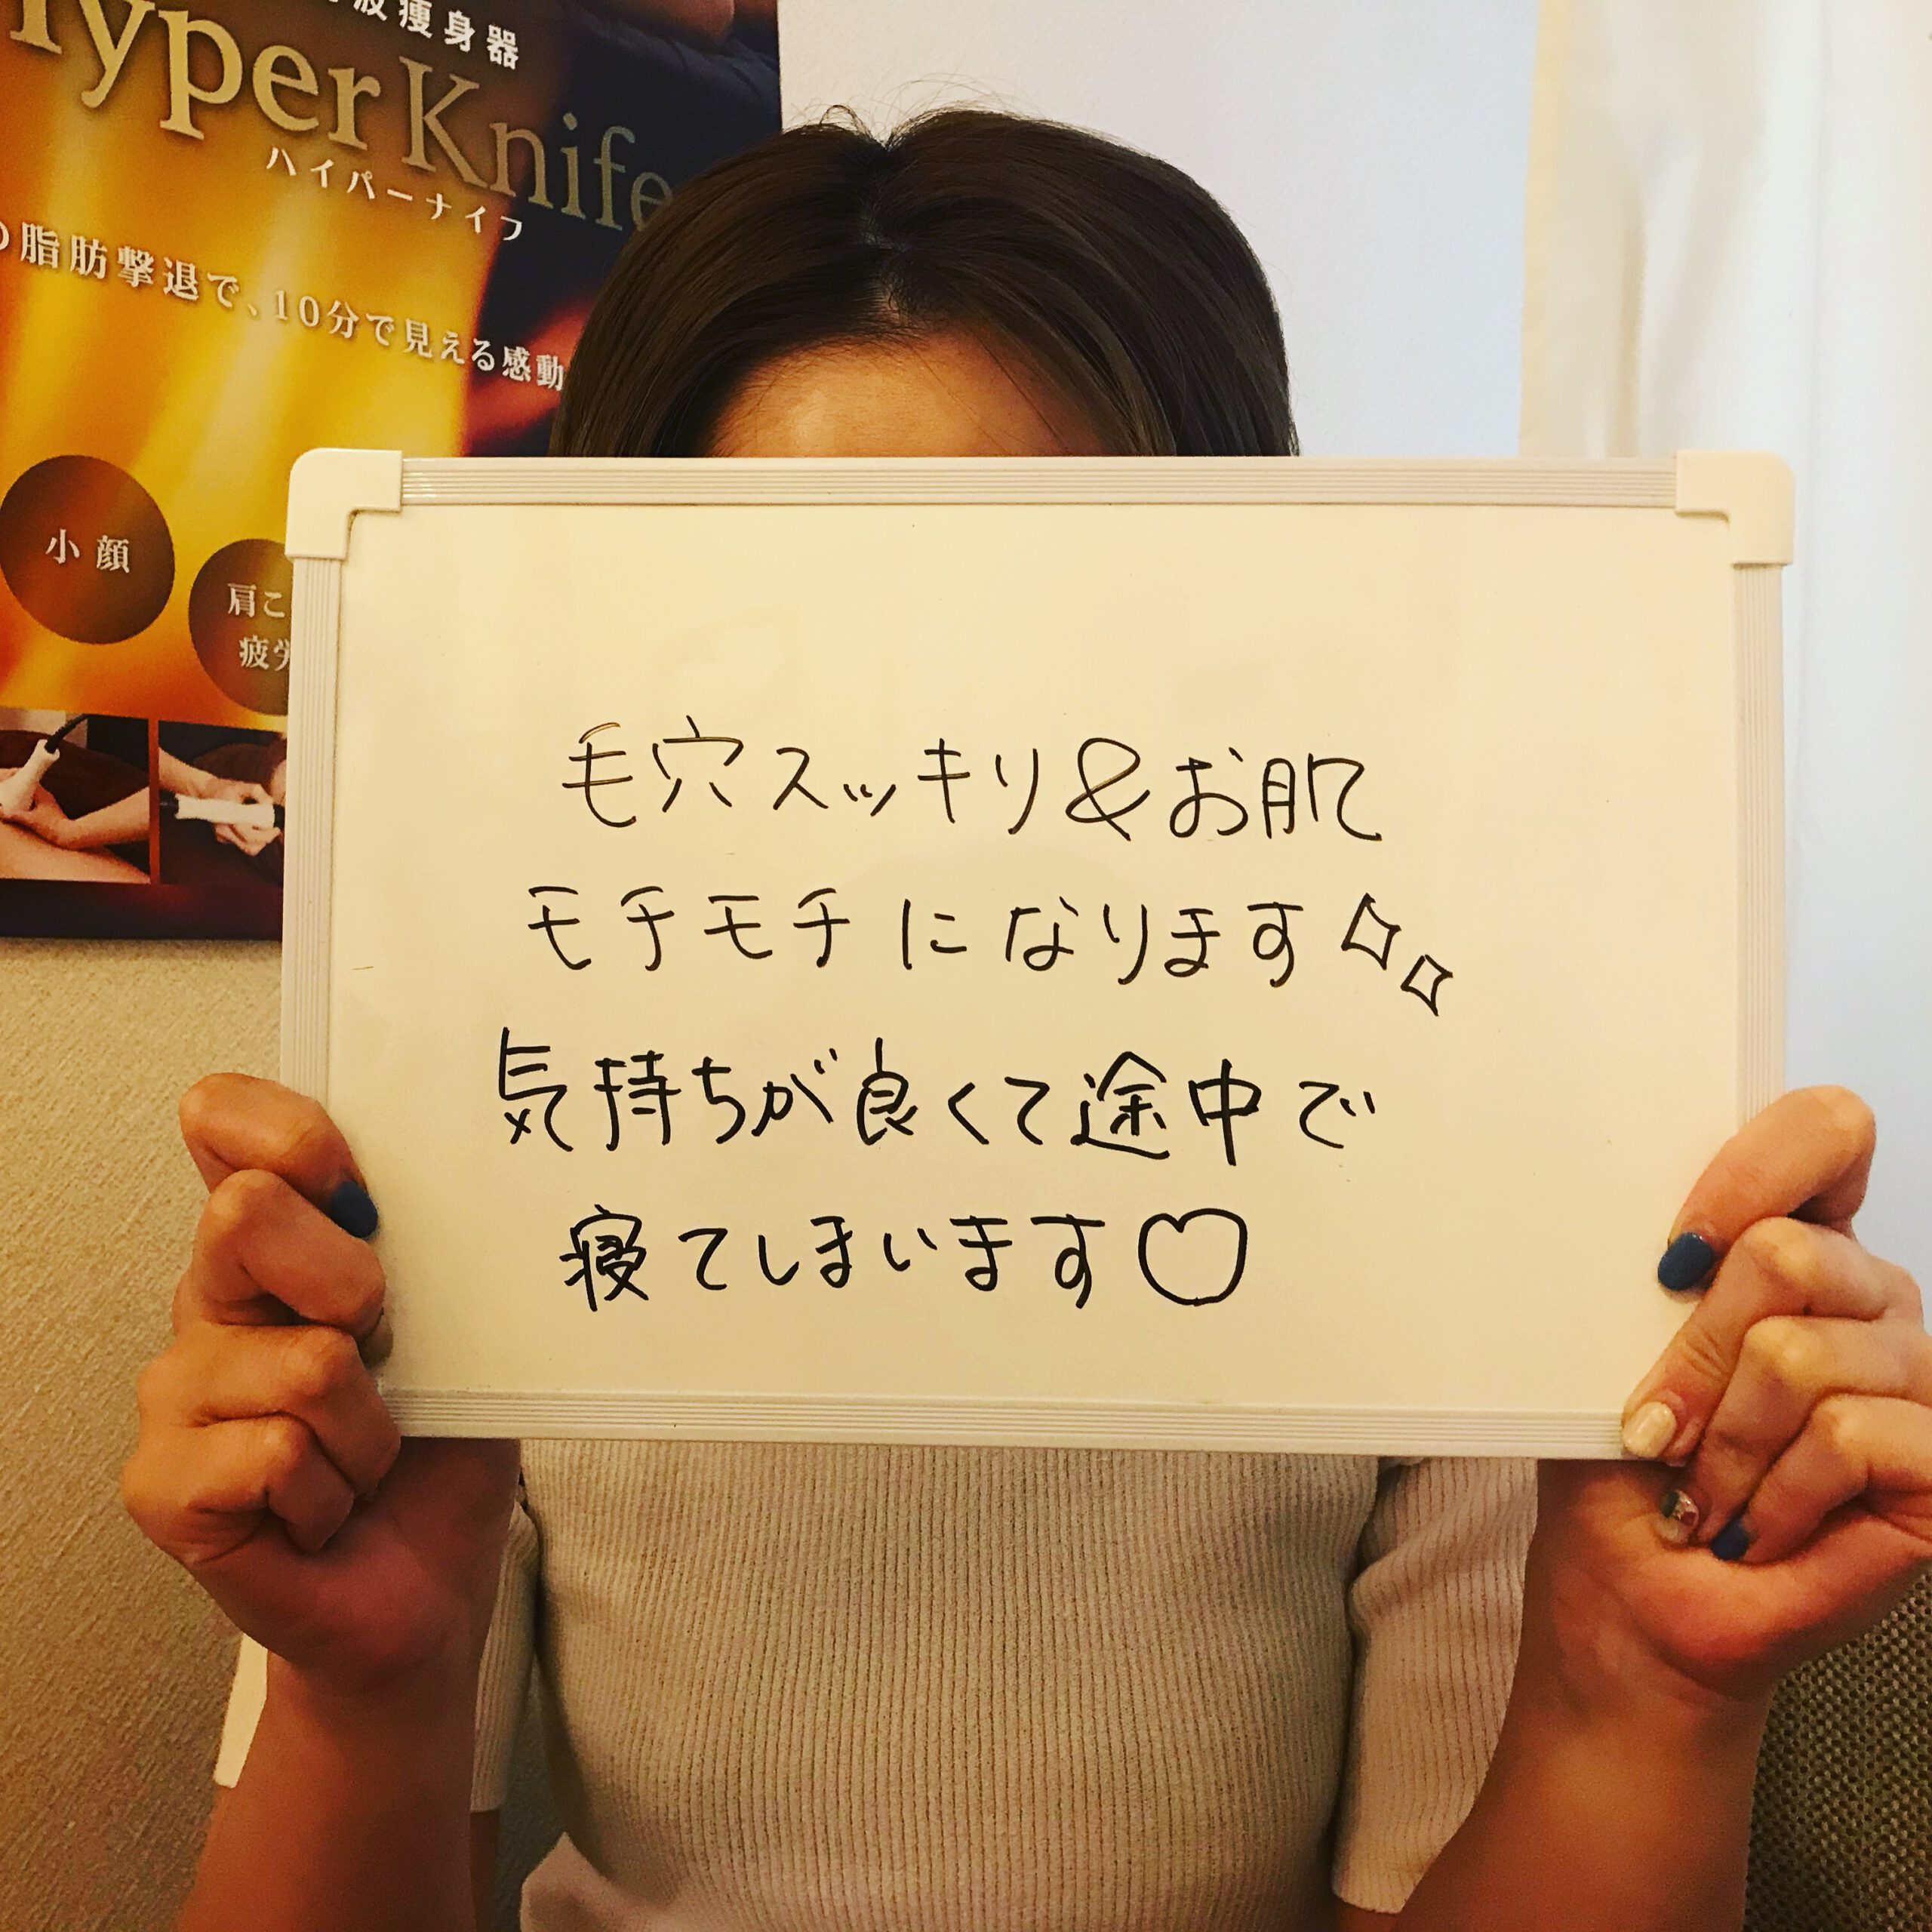 波痩身器
HyperKnife
ハイパーナイフ
の脂肪撃退で、10分で見える感動
小顔
肩こ
疲労
毛穴スッキリ&お肌
モチモチになります
気持ちが良くて途中で
寝てしまいます♡